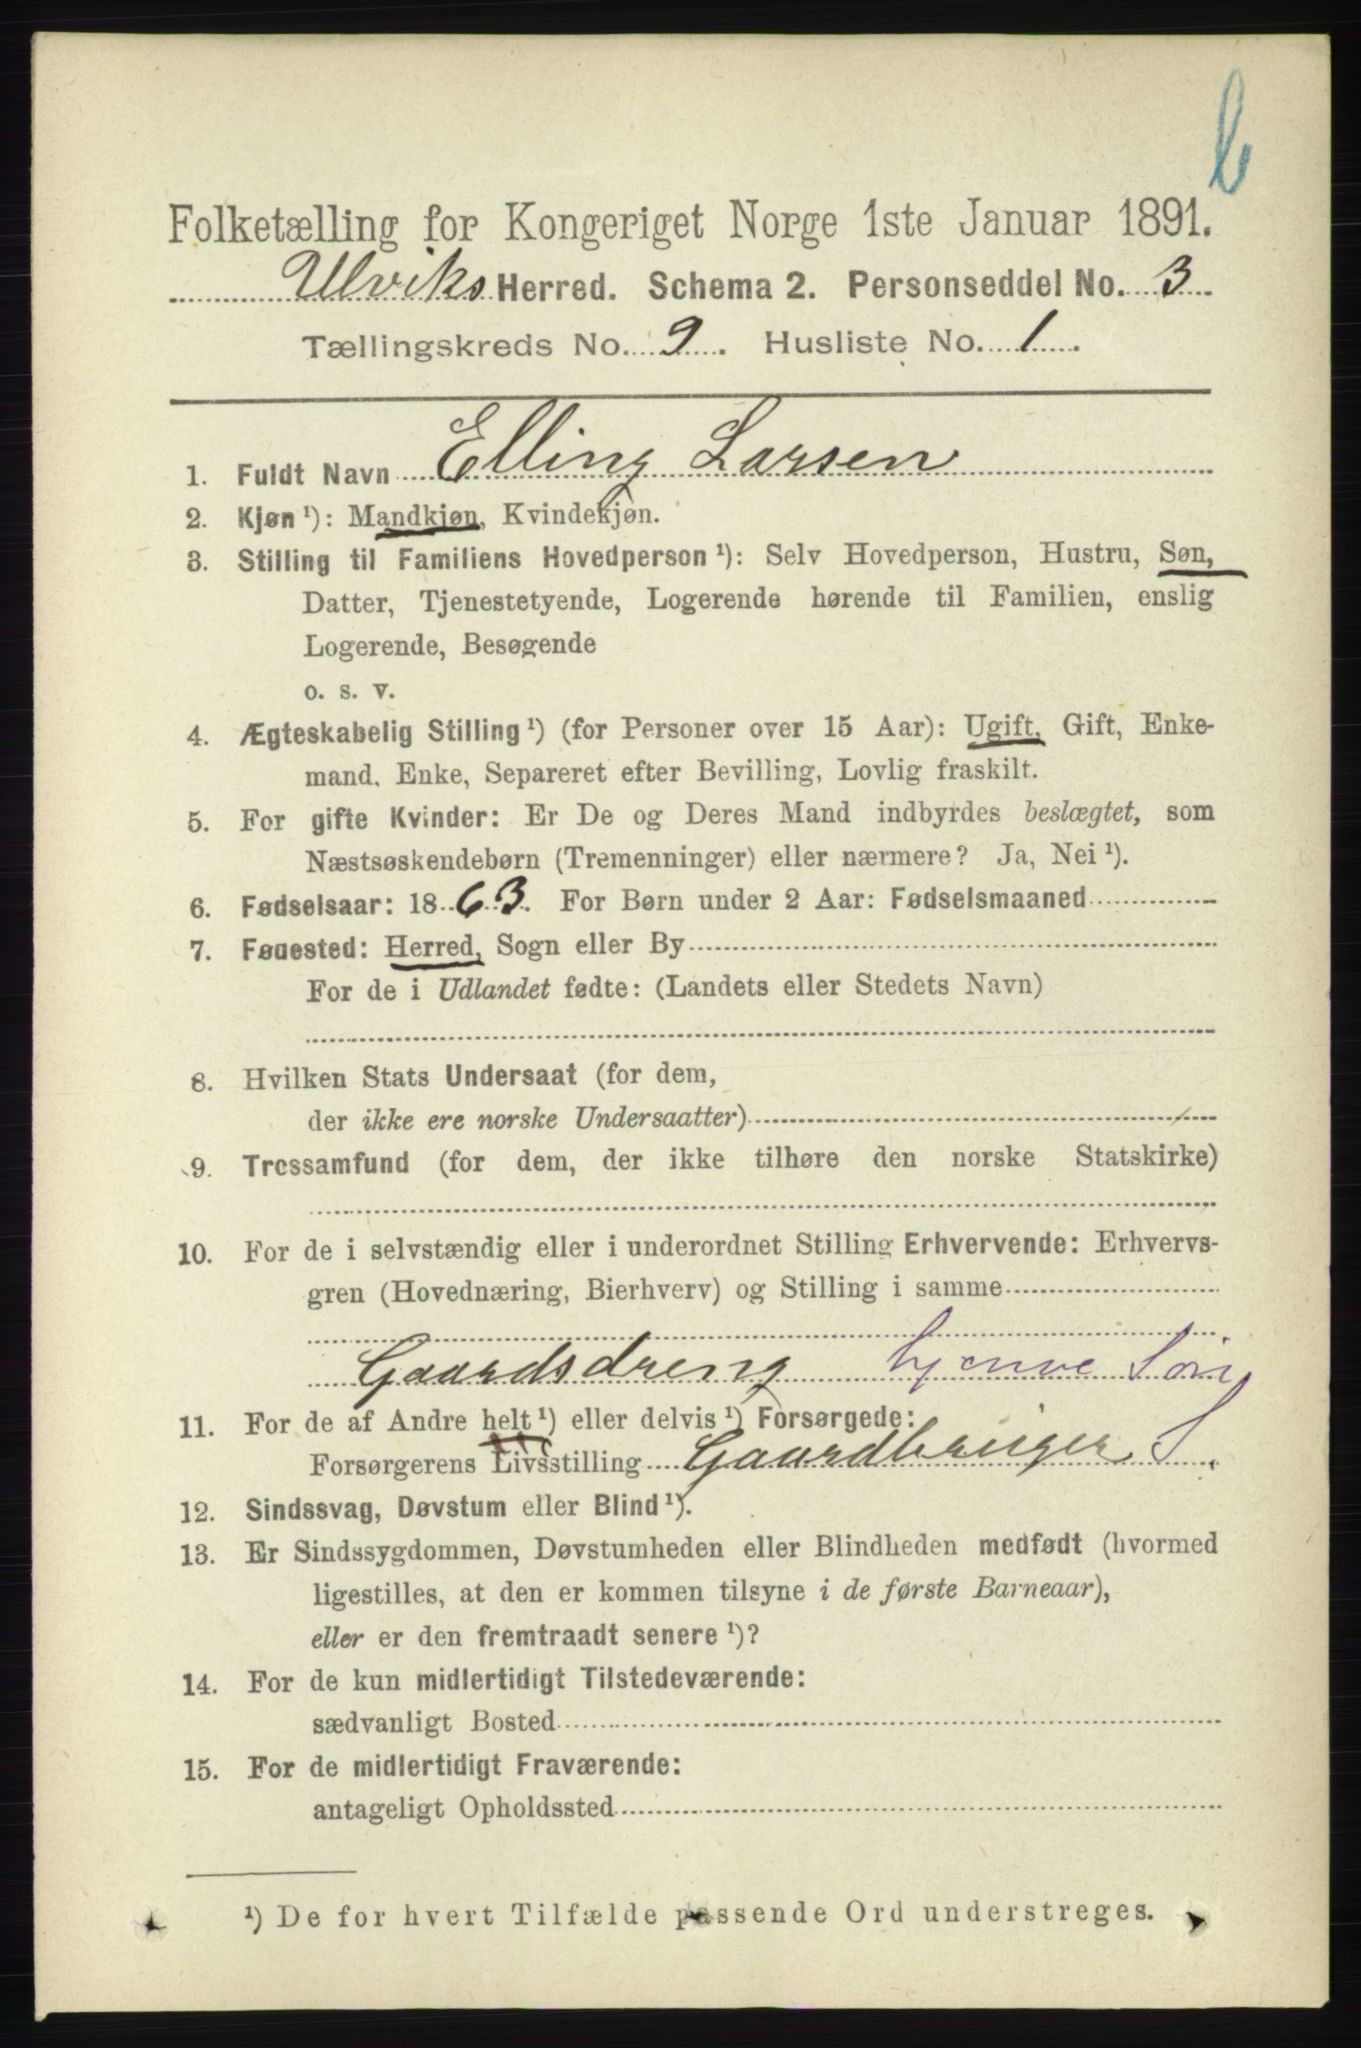 b
Folketælling for Kongeriget Norge 1ste Januar 1891.
Ulviks Herred. Schema 2. Personseddel No. 3
Tællingskreds No. 9. Husliste No. 1.
1. Fuldt Navn Elling Larsen
2. Kjøn ¹): Mandkjøn, Kvindekjøn.
3. Stilling til Familiens Hovedperson ¹): Selv Hovedperson, Hustru, Søn,
Datter, Tjenestetyende, Logerende hørende til Familien, enslig
Logerende, Besøgende
o. s. v.
4. Ægteskabelig Stilling ¹) (for Personer over 15 Aar): Ugift, Gift, Enke-
mand, Enke, Separeret efter Bevilling, Lovlig fraskilt.
5. For gifte Kvinder: Er De og Deres Mand indbyrdes beslægtet, som
Næstsøskendebørn (Tremenninger) eller nærmere? Ja, Nei ¹).
6. Fødselsaar: 1863. For Børn under 2 Aar: Fødselsmaaned
7. Fødested: Herred, Sogn eller By
For de i Udlandet fødte: (Landets eller Stedets Navn)
8. Hvilken Stats Undersaat (for dem,
der ikke ere norske Undersaatter)
9. Trossamfund (for dem, der ikke tilhøre den norske Statskirke)
10. For de i selvstændig eller i underordnet Stilling Erhvervende: Erhvervs-
gren (Hovednæring, Bierhverv) og Stilling i samme
Gaardsdreng hjemmev Søn
11. For de af Andre helt ¹) eller delvis ¹) Forsørgede:
Forsørgerens Livsstilling Gaardbruger S.
12. Sindssvag, Døvstum eller Blind ¹).
13. Er Sindssygdommen, Døvstumheden eller Blindheden medfødt (hvormed
ligestilles, at den er kommen tilsyne i de første Barneaar),
eller er den fremtraadt senere ¹)?
14. For de kun midlertidigt Tilstedeværende:
sædvanligt Bosted
15. For de midlertidigt Fraværende:
antageligt Opholdssted
¹) De for hvert Tilfælde passende Ord understreges.